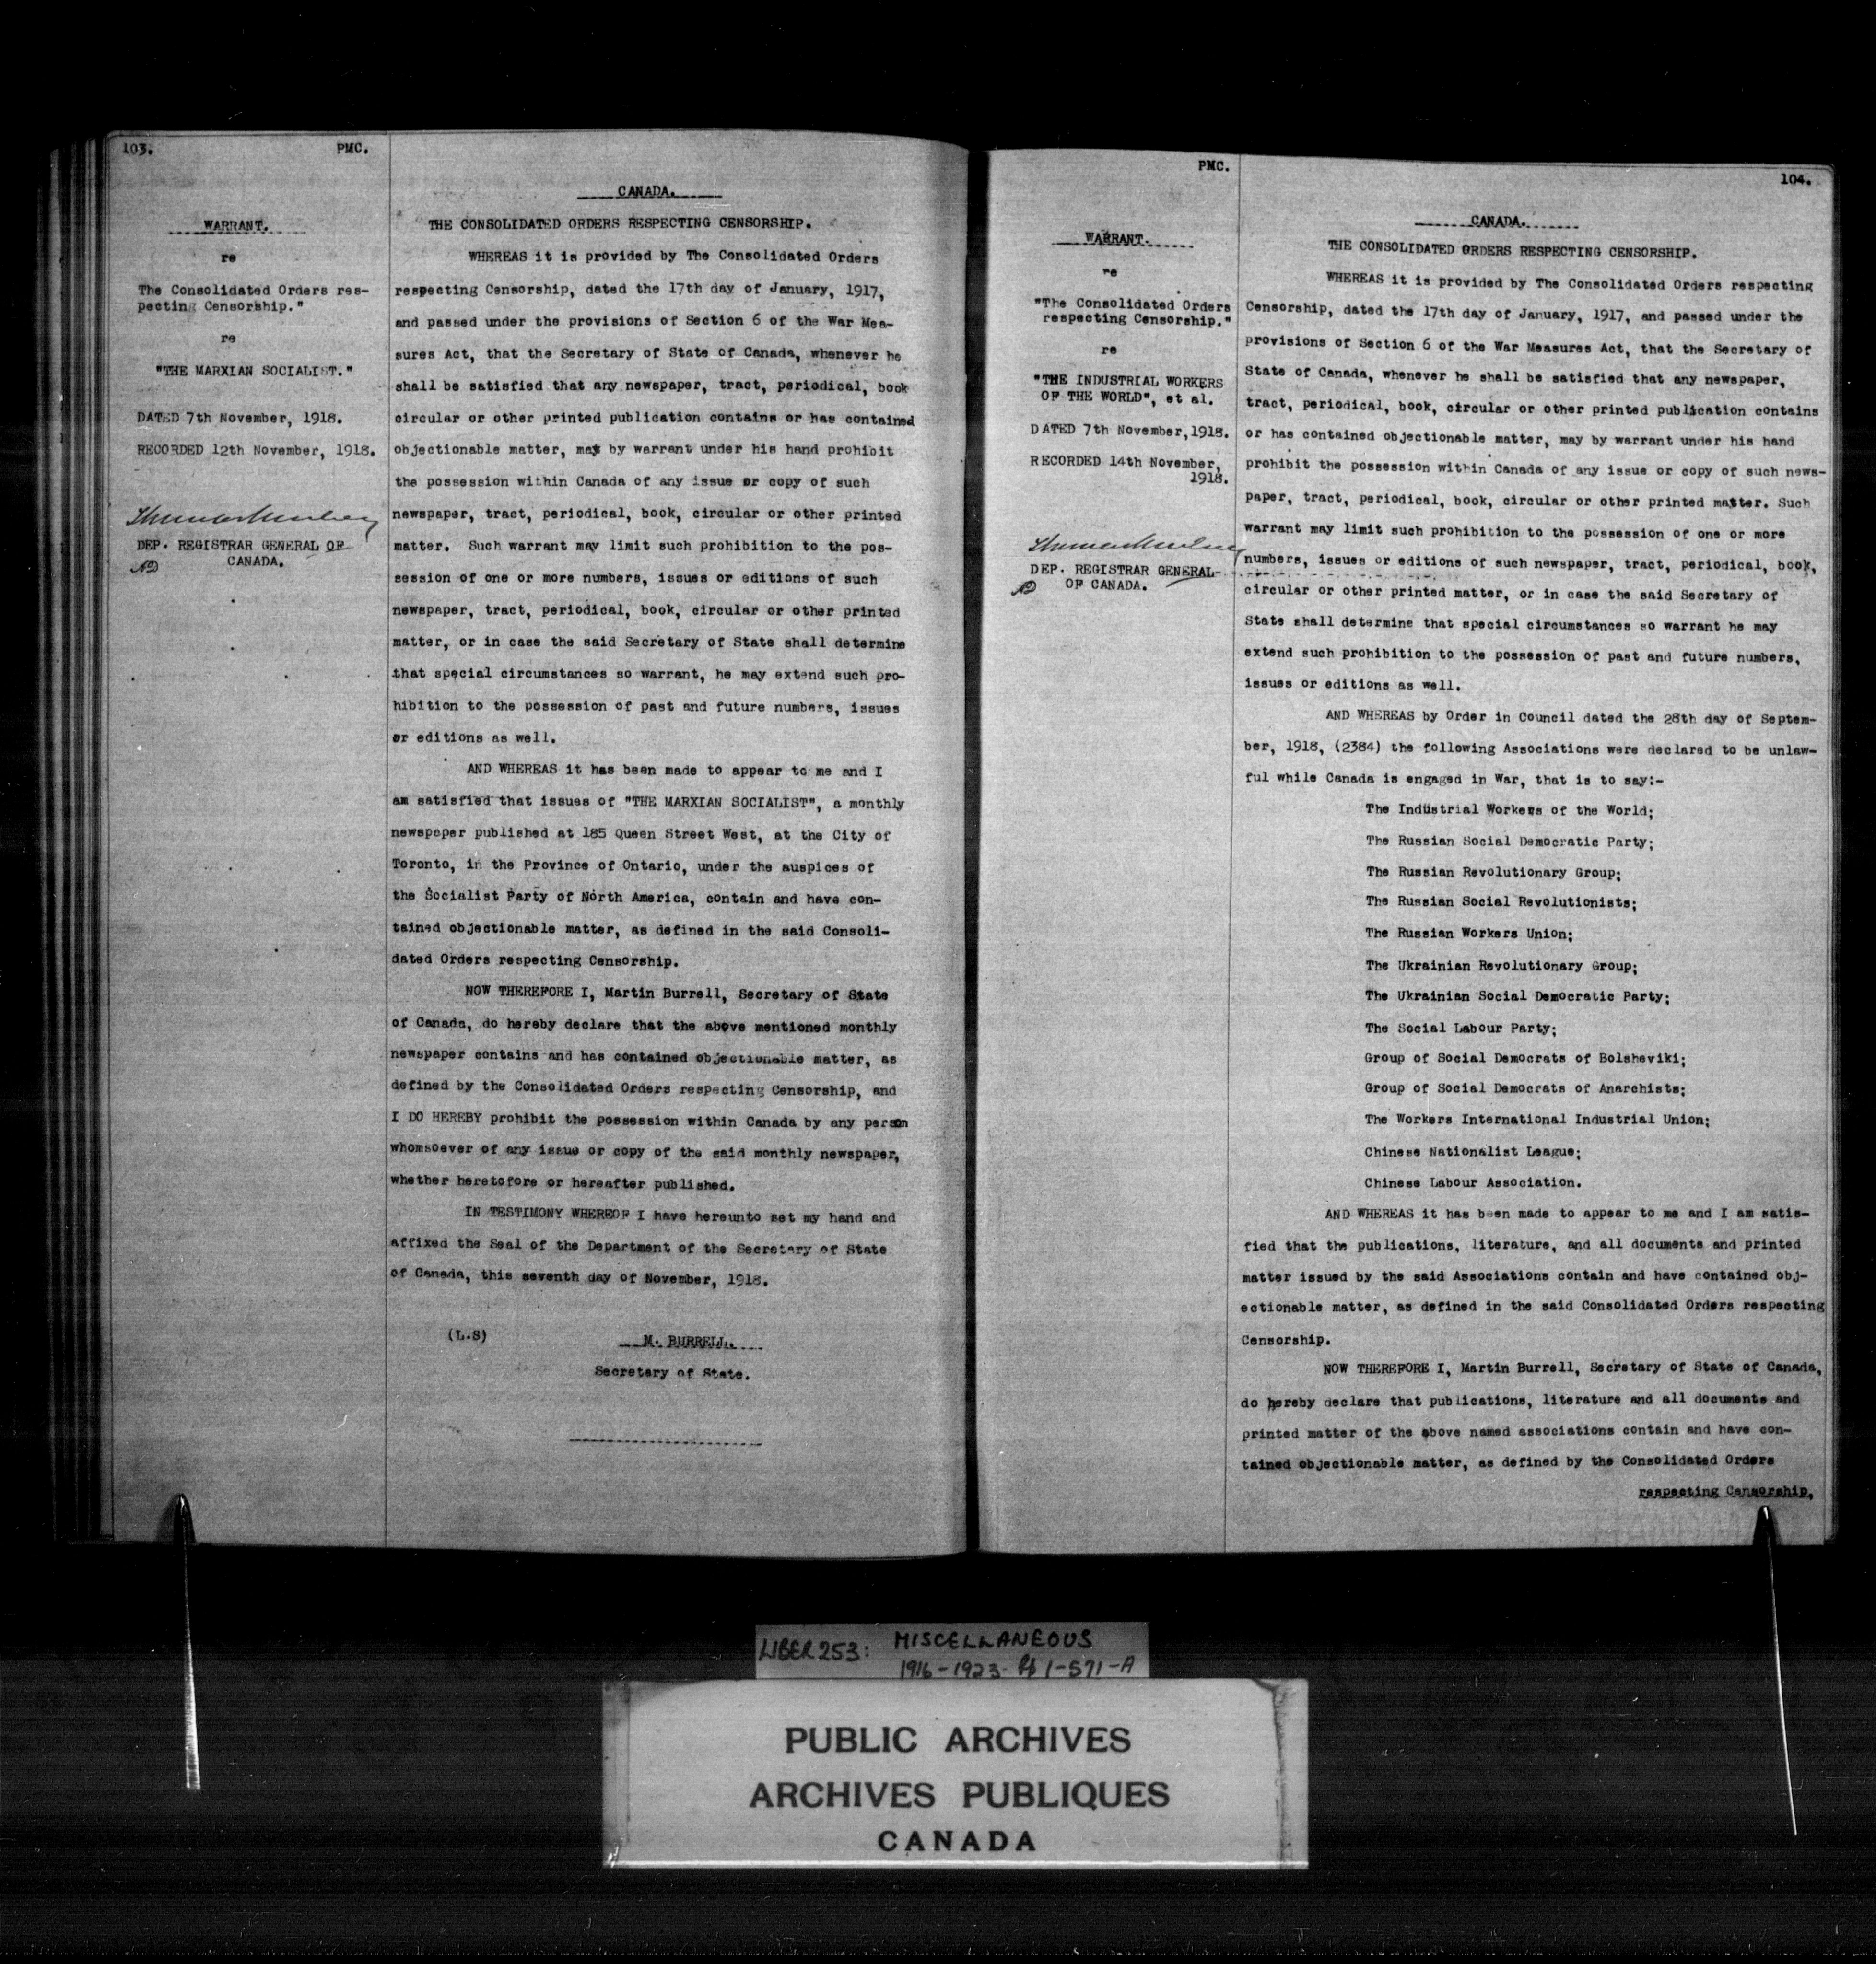 103. PMC.
WARRANT.
re
The Consolidated Orders res-
pecting Censorship."
re
"THE MARXIAN SOCIALIST."
DATED 7th November, 1918.
RECORDED 12th November, 1918.
DEP. REGISTRAR GENERAL OF
CANADA.
CANADA.
THE CONSOLIDATED ORDERS RESPECTING CENSORSHIP.
WHEREAS it is provided by The Consolidated Orders
respecting Censorship, dated the 17th day of January, 1917,
and passed under the provisions of Section 6 of the War Mea-
sures Act, that the Secretary of State of Canada, whenever he
shall be satisfied that any newspaper, tract, periodical, book
circular or other printed publication contains or has contained
objectionable matter, may by warrant under his hand prohibit
the possession within Canada of any issue or copy of such
newspaper, tract, periodical, book, circular or other printed
matter. Such warrant may limit such prohibition to the pos-
session of one or more numbers, issues or editions of such
newspaper, tract, periodical, book, circular or other printed
matter, or in case the said Secretary of State shall determine
that special circumstances so warrant, he may extend such pro-
hibition to the possession of past and future numbers, issues
or editions as well.
AND WHEREAS it has been made to appear to me and I
am satisfied that issues of "THE MARXIAN SOCIALIST", a monthly
newspaper published at 185 Queen Street West, at the City of
Toronto, in the Province of Ontario, under the auspices of
the Socialist Party of North America, contain and have con-
tained objectionable matter, as defined in the said Consoli-
dated Orders respecting Censorship.
NOW THEREFORE I, Martin Burrell, Secretary of State
of Canada, do hereby declare that the above mentioned monthly
newspaper contains and has contained objectionable matter, as
defined by the Consolidated Orders respecting Censorship, and
I DO HEREBY prohibit the possession within Canada by any person
whomsoever of any issue or copy of the said monthly newspaper,
whether heretofore or hereafter published.
IN TESTIMONY WHEREOF I have hereunto set my hand and
affixed the Seal of the Department of the Secretary of State
of Canada, this seventh day of November, 1918.
(L.S) M. BURRELL.
Secretary of State.
PMC. 104.
WARRANT.
re
"The Consolidated Orders
respecting Censorship."
re
"THE INDUSTRIAL WORKERS
OF THE WORLD", et al.
DATED 7th November, 1918.
RECORDED 14th November,
1918.
DEP. REGISTRAR GENERAL
OF CANADA.
CANADA.
THE CONSOLIDATED ORDERS RESPECTING CENSORSHIP.
WHEREAS it is provided by The Consolidated Orders respecting
Censorship, dated the 17th day of January, 1917, and passed under the
provisions of Section 6 of the War Measures Act, that the Secretary of
State of Canada, whenever he shall be satisfied that any newspaper,
tract, periodical, book, circular or other printed publication contains
or has contained objectionable matter, may by warrant under his hand
prohibit the possession within Canada of any issue or copy of such news-
paper, tract, periodical, book, circular or other printed matter. Such
warrant may limit such prohibition to the possession of one or more
numbers, issues or editions of such newspaper, tract, periodical, book,
circular or other printed matter, or in case the said Secretary of
State shall determine that special circumstances so warrant he may
extend such prohibition to the possession of past and future numbers,
issues or editions as well.
AND WHEREAS by Order in Council dated the 28th day of Septem-
ber, 1918, (2384) the following Associations were declared to be unlaw-
ful while Canada is engaged in War, that is to say:-
The Industrial Workers of the World;
The Russian Social Democratic Party;
The Russian Revolutionary Group;
The Russian Social Revolutionists;
The Russian Workers Union;
The Ukrainian Revolutionary Group;
The Ukrainian Social Democratic Party;
The Social Labour Party;
Group of Social Democrats of Bolsheviki;
Group of Social Democrats of Anarchists;
The Workers International Industrial Union;
Chinese Nationalist League;
Chinese Labour Association.
AND WHEREAS it has been made to appear to me and I am satis-
fied that the publications, literature, and all documents and printed
matter issued by the said Associations contain and have contained obj-
ectionable matter, as defined in the said Consolidated Orders respecting
Censorship.
NOW THEREFORE I, Martin Burrell, Secretary of State of Canada,
do hereby declare that publications, literature and all documents and
printed matter of the above named associations contain and have con-
tained objectionable matter, as defined by the Consolidated Orders
respecting Censorship,
LIBER 253: MISCELLANEOUS
1916-1923- Pp 1-571-A
PUBLIC ARCHIVES
ARCHIVES PUBLIQUES
CANADA